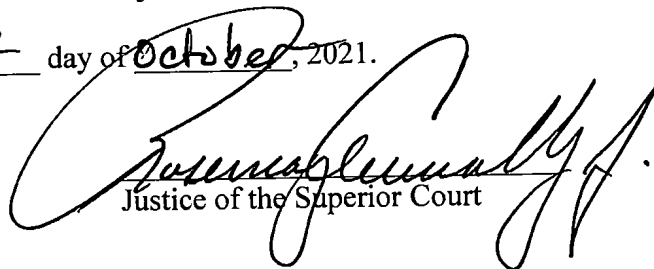 day of October, 2021.
Justice of the Superior Court